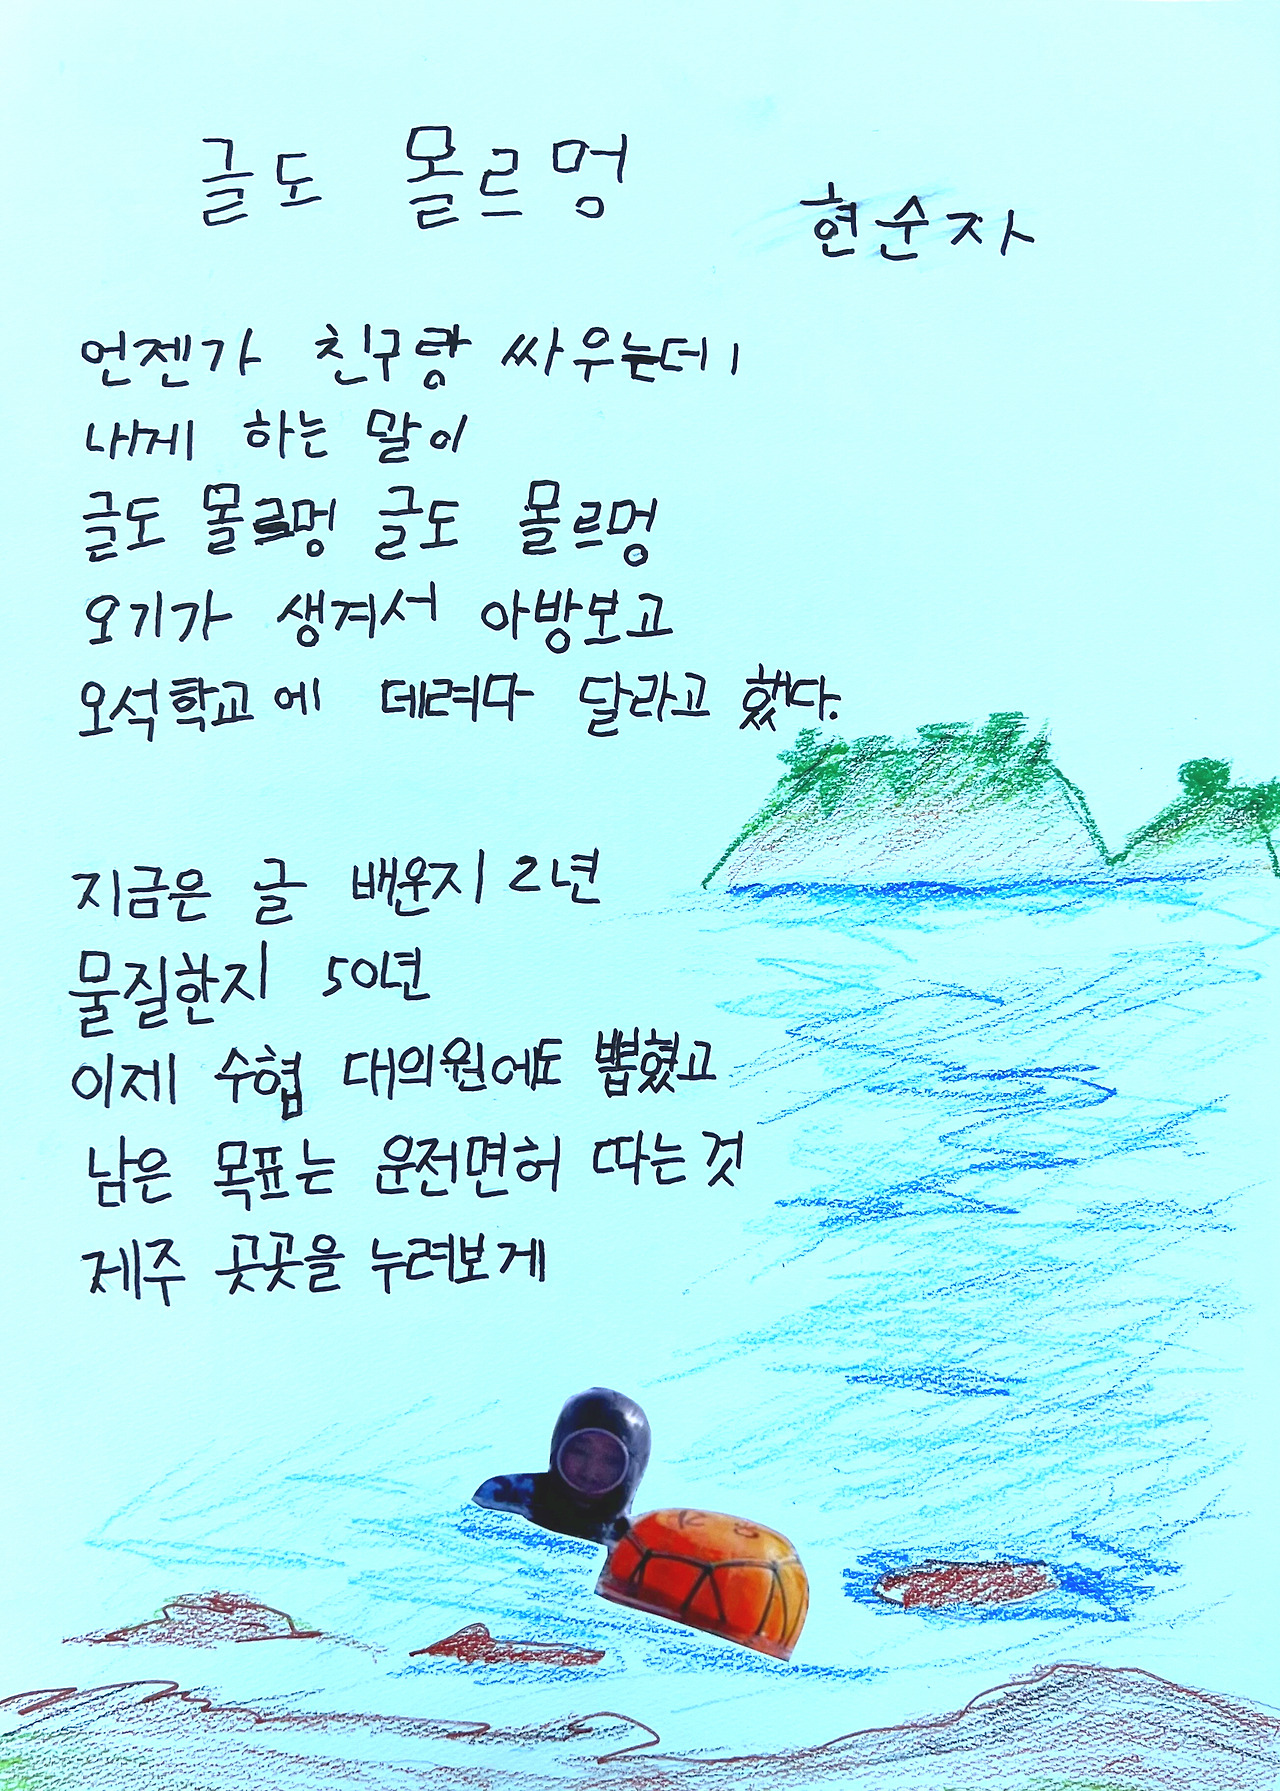 글도 몰르멍
현순자
언젠가 친구랑 싸우는데
내게 하는 말이
글도 몰르멍 글도 몰르멍
오기가 생겨서 아방보고
오석학교에 데려다 달라고 했다.
지금은 글 배운지 2년
물질한지 50년
이제 수협 대의원에도 뽑혔고
남은 목표는 운전면허 따는것
제주 곳곳을 누려보게